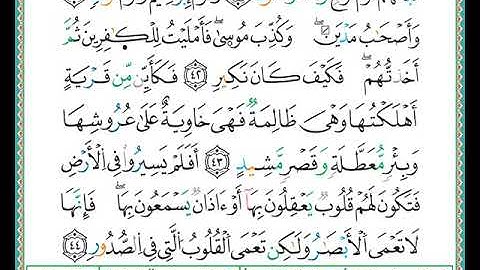 وَأَصْحَٰبُ مَدْيَنَ ۖ وَكُذِّبَ مُوسَىٰ ۖ فَأَمْلَيْتُ لِلْكَٰفِرِينَ ثُمَّ
أَخَذتُّهُمْ ۖ فَكَيْفَ كَانَ نَكِيرِ ٤٢ فَكَأَيِّن مِّن قَرْيَةٍ
أَهْلَكْتُهَا وَهِىَ ظَالِمَةٌ فَهِىَ خَاوِيَةٌ عَلَىٰ عُرُوشِهَا
وَبِئْرٍ مُّعَطَّلَةٍ وَقَصْرٍ مَّشِيدٍ ٤٣ أَفَلَمْ يَسِيرُوا۟ فِى ٱلْأَرْضِ
فَتَكُونَ لَهُمْ قُلُوبٌ يَعْقِلُونَ بِهَآ أَوْ ءَاذَانٌ يَسْمَعُونَ بِهَا ۖ فَإِنَّهَا
لَا تَعْمَى ٱلْأَبْصَٰرُ وَلَٰكِن تَعْمَى ٱلْقُلُوبُ ٱلَّتِى فِى ٱلصُّدُورِ ٤٤